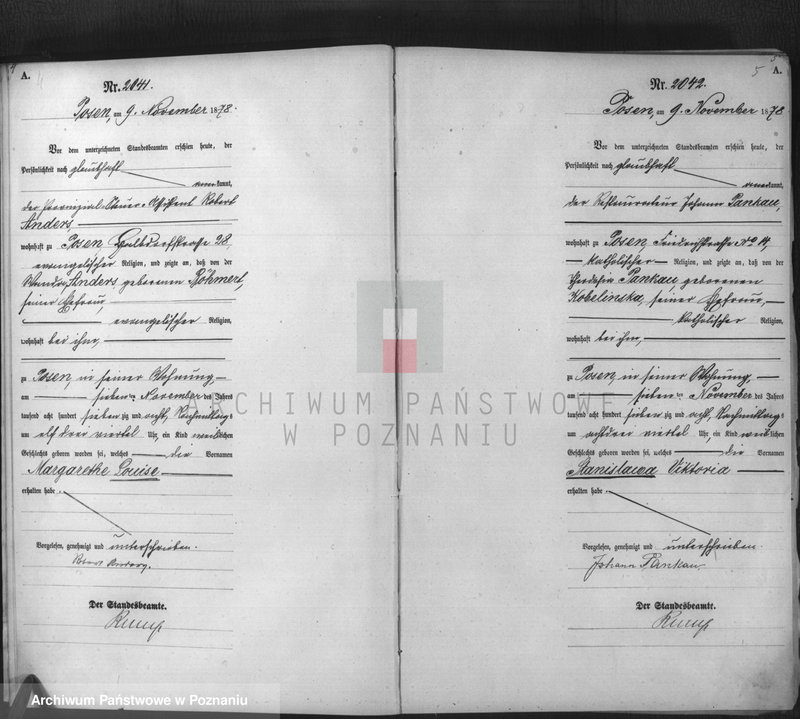 A.
Nr. 2041.
Posen, am 9. November 1878.
Vor dem unterzeichneten Standesbeamten erschien heute, der
Persönlichkeit nach glaubhaft
kannt,
der Provinzial-Steuer-Assistent Robert
Anders,
wohnhaft zu Posen, Halbdorfstrasse 28,
evangelischer Religion, und zeigte an, daß von der
Anders geborenen Röhmert,
seiner Ehefrau,
evangelischer Religion,
wohnhaft bei ihm,
zu Posen, in seiner Wohnung,
am sieten November des Jahres
tausend acht hundert siebenzig und acht, Nachmittags
um elf drei viertel Uhr ein Kind weiblichen
Geschlechts geboren worden sei, welches die Vornamen
Margarethe Louise
erhalten habe
Vorgelesen, genehmigt und unterschrieben.
Robert Anders.
Der Standesbeamte.
5 A.
Nr. 2042.
Posen, am 9. November 1878.
Vor dem unterzeichneten Standesbeamten erschien heute, der
Persönlichkeit nach glaubhaft
kannt,
der Restaurateur Johann Pankau,
wohnhaft zu Posen, Friedrichstrasse No 14,
katholischer Religion, und zeigte an, daß von der
Theodosia Pankau, geborenen
Kobelinska, seiner Ehefrau,
katholischer Religion,
wohnhaft bei ihm,
zu Posen, in seiner Wohnung,
am sieten November des Jahres
tausend acht hundert siebenzig und acht, Nachmittags
um acht drei viertel Uhr ein Kind weiblichen
Geschlechts geboren worden sei, welches die Vornamen
Stanislawa Viktoria
erhalten habe
Vorgelesen, genehmigt und unterschrieben.
Johann Pankau
Der Standesbeamte.
ARCHIWUM PAŃSTWOWE
W POZNANIU
Archiwum Państwowe w Poznaniu